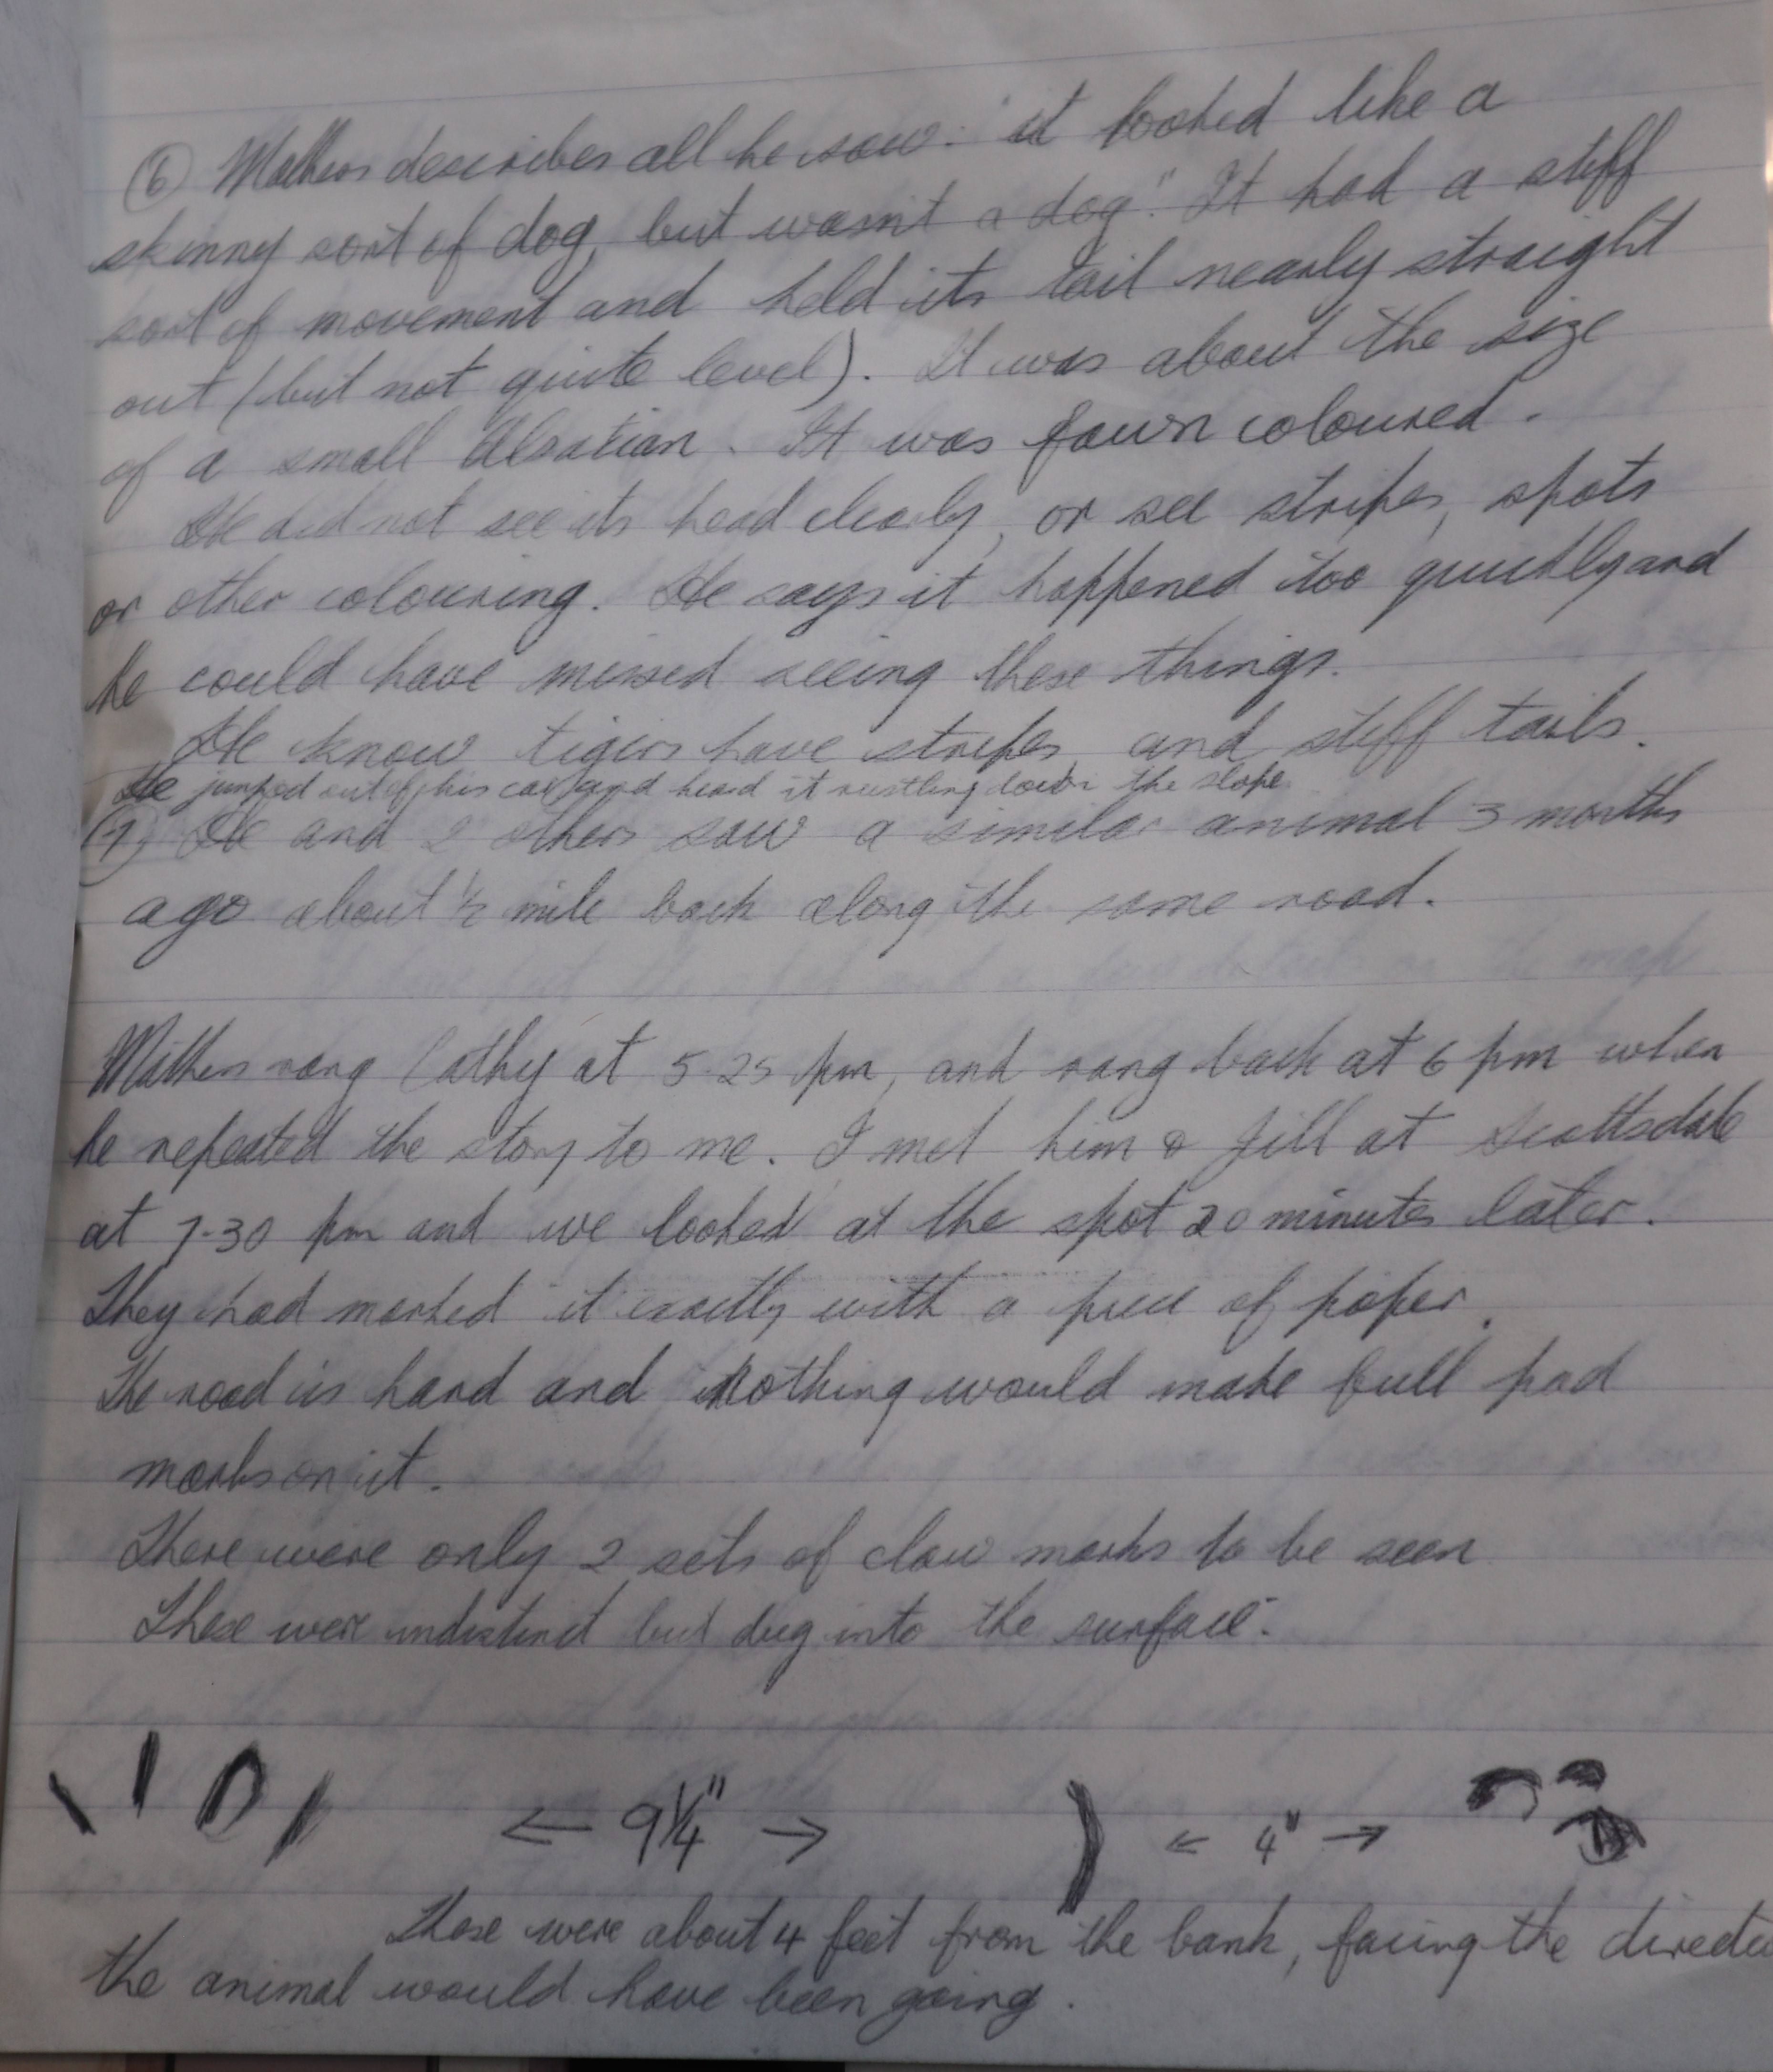 ⑥ Mathers describes all he saw: "it looked like a
skinny sort of dog, but wasn't a dog". It had a stiff
sort of movement and held its tail nearly straight
out (but not quite level). It was about the size
of a small Alsatian. It was fawn coloured.
He did not see its head clearly, or see stripes, spots
or other colouring. He says it happened too quickly and
he could have missed seeing these things.
He know tigers have stripes, and stiff tails.
He jumped out of his car and heard it rustling down the slope.
⑦ He and 2 others saw a similar animal 3 months
ago about ½ mile back along the same road.
Mathers rang Cathy at 5-25 pm, and rang back at 6 pm when
he repeated the story to me. I met him & Jill at Scottsdale
at 7-30 pm and we looked at the spot 20 minutes later.
They had marked it exactly with a piece of paper.
The road is hard and nothing would make full pad
marks on it.
There were only 2 sets of claw marks to be seen
These were indistinct but dug into the surface.
← 9¼" → ← 4" →
These were about 4 feet from the bank, facing the directio
the animal would have been going.